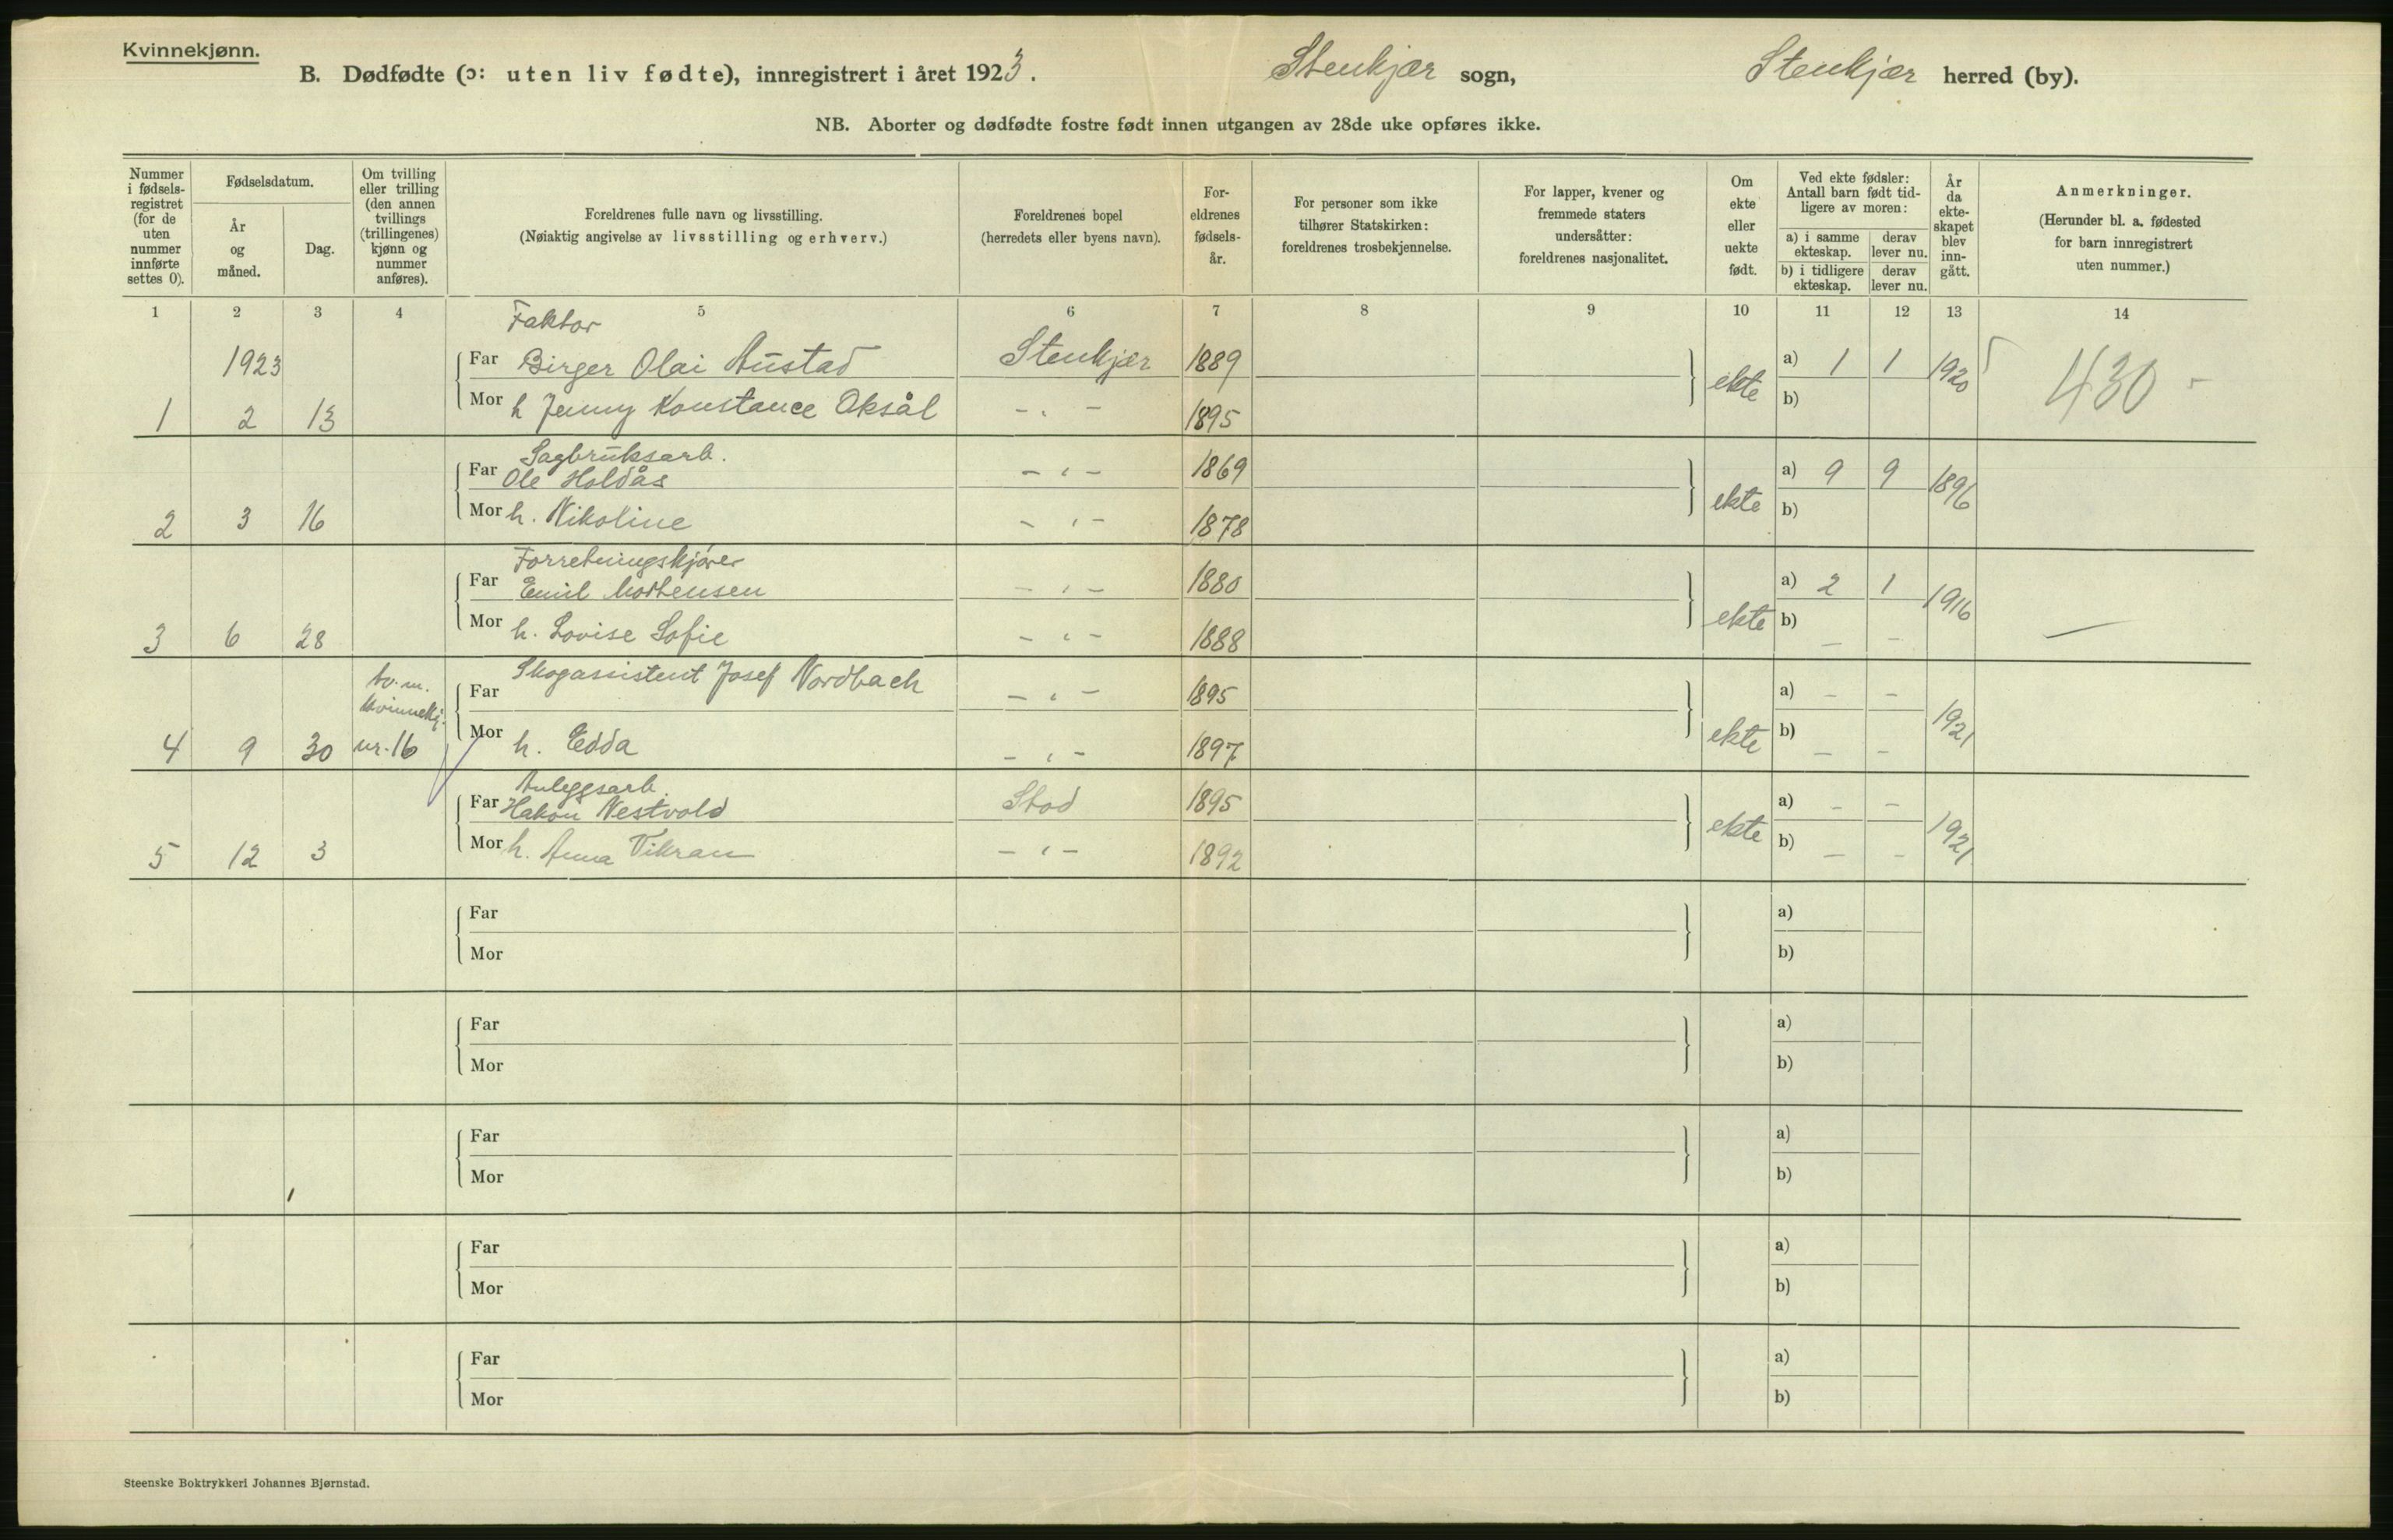 Kvinnekjønn.
B. Dødfødte (ɔ: uten liv fødte), innregistrert i året 1923. Stenkjær sogn, Stenkjær herred (by).
NB. Aborter og dødfødte fostre født innen utgangen av 28de uke opføres ikke.
Nummer i fødsels-registret (for de uten nummer innførte settes 0).
Fødselsdatum.
År og måned.
Dag.
Om tvilling eller trilling (den annen tvillings (trillingenes) kjønn og nummer anføres).
Foreldrenes fulle navn og livsstilling.
(Nøiaktig angivelse av livsstilling og erhverv.)
Foreldrenes bopel
(herredets eller byens navn).
For-eldrenes fødsels-år.
For personer som ikke tilhører Statskirken: foreldrenes trosbekjennelse.
For lapper, kvener og fremmede staters undersåtter: foreldrenes nasjonalitet.
Om ekte eller uekte født.
Ved ekte fødsler: Antall barn født tid-ligere av moren:
a) i samme ekteskap.
derav lever nu.
b) i tidligere ekteskap.
derav lever nu.
År da ekte-skapet blev inn-gått.
Anmerkninger.
(Herunder bl. a. fødested for barn innregistrert uten nummer.)
1 2 3 4 5 6 7 8 9 10 11 12 13 14
Faktor
1923 Far Birger Olai Austad Stenkjær 1889 a) 1 1 1920 430
1 2 13 Mor h Jenny Konstance Oksål - " - 1895 ekte b)
Sagbruksarb.
Far Ole Holdås - " - 1869 a) 9 9 1896
2 3 16 Mor h. Nikoline - " - 1878 ekte b)
Forretningskjører
Far Emil Mortensen - " - 1880 a) 2 1 1916
3 6 28 Mor h. Lovise Sofie - " - 1888 ekte b) - - —
tv. m. kvinnekj. Far Skogassistent Josef Nordbach - " - 1895 a) - - 1921
4 9 30 nr. 16 Mor h. Edda - " - 1897 ekte b) - -
Anleggsarb.
Far Hakon Nestvold Stod 1895 a) - - 1921
5 12 3 Mor h. Anna Vikran - " - 1892 ekte b) - -
Far a)
Mor b)
Far a)
Mor b)
Far a)
Mor b)
Far a)
Mor b)
Far a)
Mor b)
Steenske Boktrykkeri Johannes Bjørnstad.